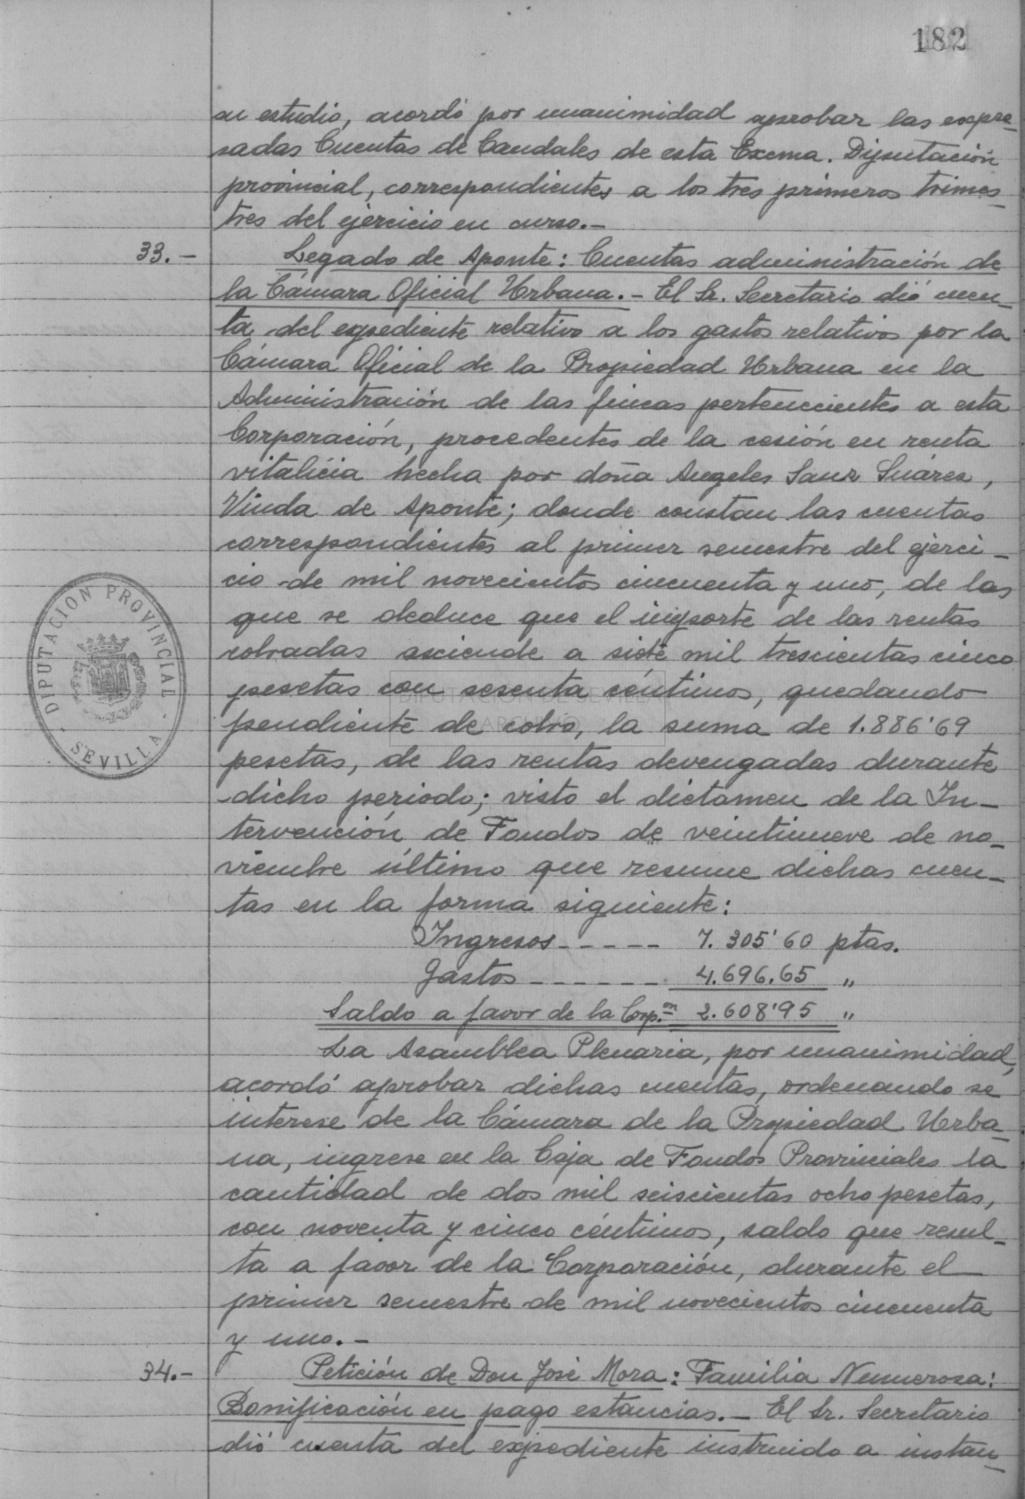 182
su estudio, acordó por unanimidad aprobar las expre-
sadas Cuentas de Caudales de esta Excma. Diputación
provincial, correspondientes a los tres primeros trimes-
tres del ejercicio en curso.-
33.- Legado de Aponte: Cuentas administración de
la Cámara Oficial Urbana.- El Sr. Secretario dió cuen-
ta del expediente relativo a los gastos relativos por la
Cámara Oficial de la Propiedad Urbana en la
Administración de las fincas pertenecientes a esta
Corporación, procedentes de la cesión en renta
vitalicia hecha por doña Angeles Sanz Suárez,
Viuda de Aponte; donde constan las cuentas
correspondientes al primer semestre del ejerci-
cio de mil novecientos cincuenta y uno, de las
que se deduce que el importe de las rentas
cobradas asciende a siete mil trescientas cinco
pesetas con sesenta céntimos, quedando
pendiente de cobro, la suma de 1.886'69
pesetas, de las rentas devengadas durante
dicho periodo; visto el dictamen de la In-
tervención de Fondos de veintinueve de no-
viembre último que resume dichas cuen-
tas en la forma siguiente:
Ingresos----- 7.305'60 ptas.
Gastos------ 4.696,65 "
Saldo a favor de la Corp.ón 2.608'95 "
La Asamblea Plenaria, por unanimidad,
acordó aprobar dichas cuentas, ordenando se
interese de la Cámara de la Propiedad Urba-
na, ingrese en la Caja de Fondos Provinciales la
cantidad de dos mil seiscientas ocho pesetas,
con noventa y cinco céntimos, saldo que resul-
ta a favor de la Corporación, durante el
primer semestre de mil novecientos cincuenta
y uno.-
34.- Petición de Don José Mora: Familia Numerosa:
Bonificación en pago estancias.- El Sr. Secretario
dió cuenta del expediente instruido a instan-
DIPUTACION PROVINCIAL
- SEVILLA -
DIPUTACIÓN DE SEVILLA
ARCHIVO